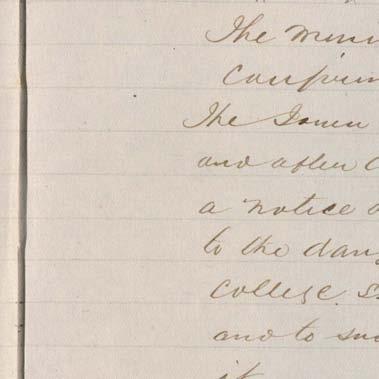 The min
confirm
The Town
and after
a notice
to the dan
college s
and to su
it